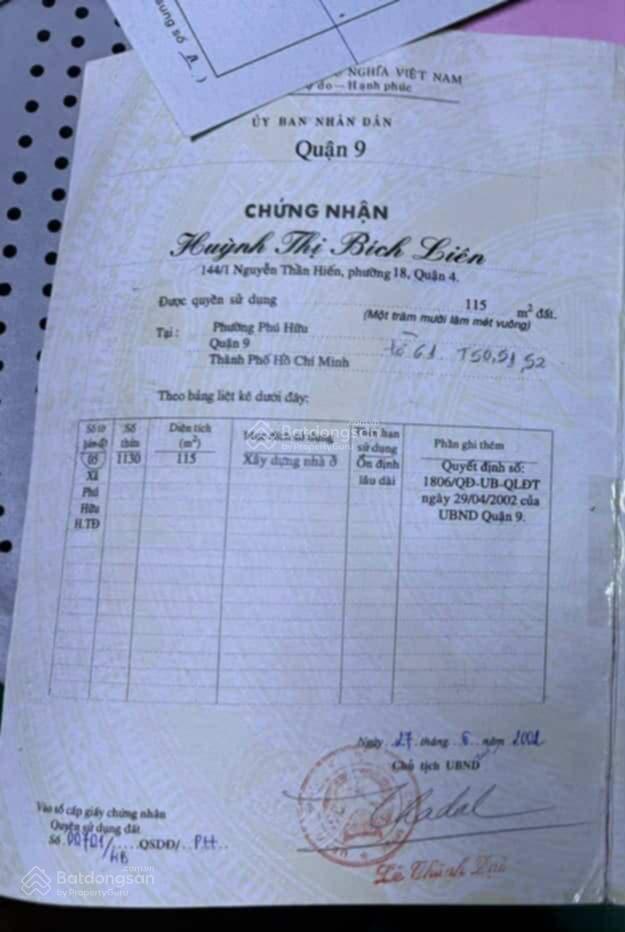 sung số A )
NGHĨA VIỆT NAM
do — Hạnh phúc
ỦY BAN NHÂN DÂN
Quận 9
CHỨNG NHẬN
Huỳnh Thị Bích Liên
144/1 Nguyễn Thần Hiến, phường 18, Quận 4.
Được quyền sử dụng 115 m² đất.
(Một trăm mười lăm mét vuông)
Tại : Phường Phú Hữu
Quận 9
Thành Phố Hồ Chí Minh
tờ 61 T50,51,52
Theo bảng liệt kê dưới đây:
Số tờ bản đồ
Số thửa
Diện tích (m²)
Mục đích sử dụng
Thời hạn sử dụng
Phần ghi thêm
05 Xã Phú Hữu H.TĐ
1130
115
Xây dựng nhà ở
Ổn định lâu dài
Quyết định số:
1806/QĐ-UB-QLĐT
ngày 29/04/2002 của
UBND Quận 9.
Batdongsan.com.vn
by PropertyGuru
Ngày 27 tháng 6 năm 2002
Chủ tịch UBND
Vào sổ cấp giấy chứng nhận
Quyền sử dụng đất
Số QSDĐ/ PH
Batdongsan.com.vn
by PropertyGuru